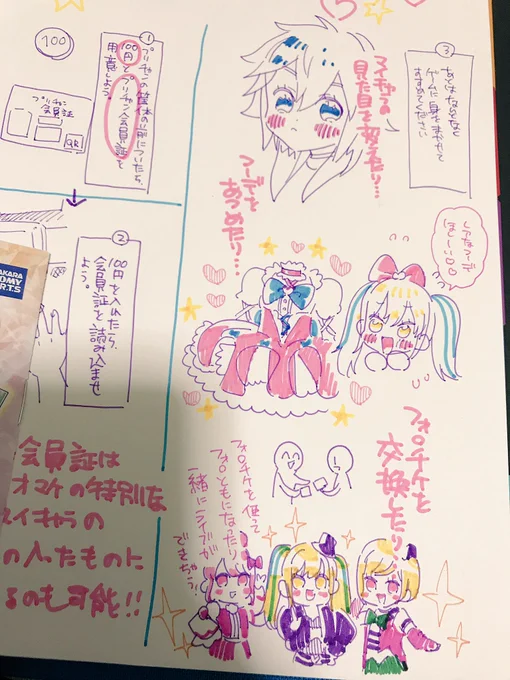 ①
プリチャンの筐体の前についたら、
100円とプリチャン会員証を
用意しよう。
100
プリチャン
会員証
QR
②
100円を入れたら、
会員証を読み込ませ
よう。
TAKARA
TOMY
ARTS
会員証は
オマケの特別な
マイキャラの
の入ったものに
るのも可能!!
③
あとはなんとなく
ゲームに身をまかせて
すすめてください
マイキャラの
見た目を変えたり…
コーデを
あつめたり…
レアなコーデ
ほしーい♡♡
フォロチケを
交換したり
フォロチケを使って
フォロともになったり
一緒にライブが
できちゃう。